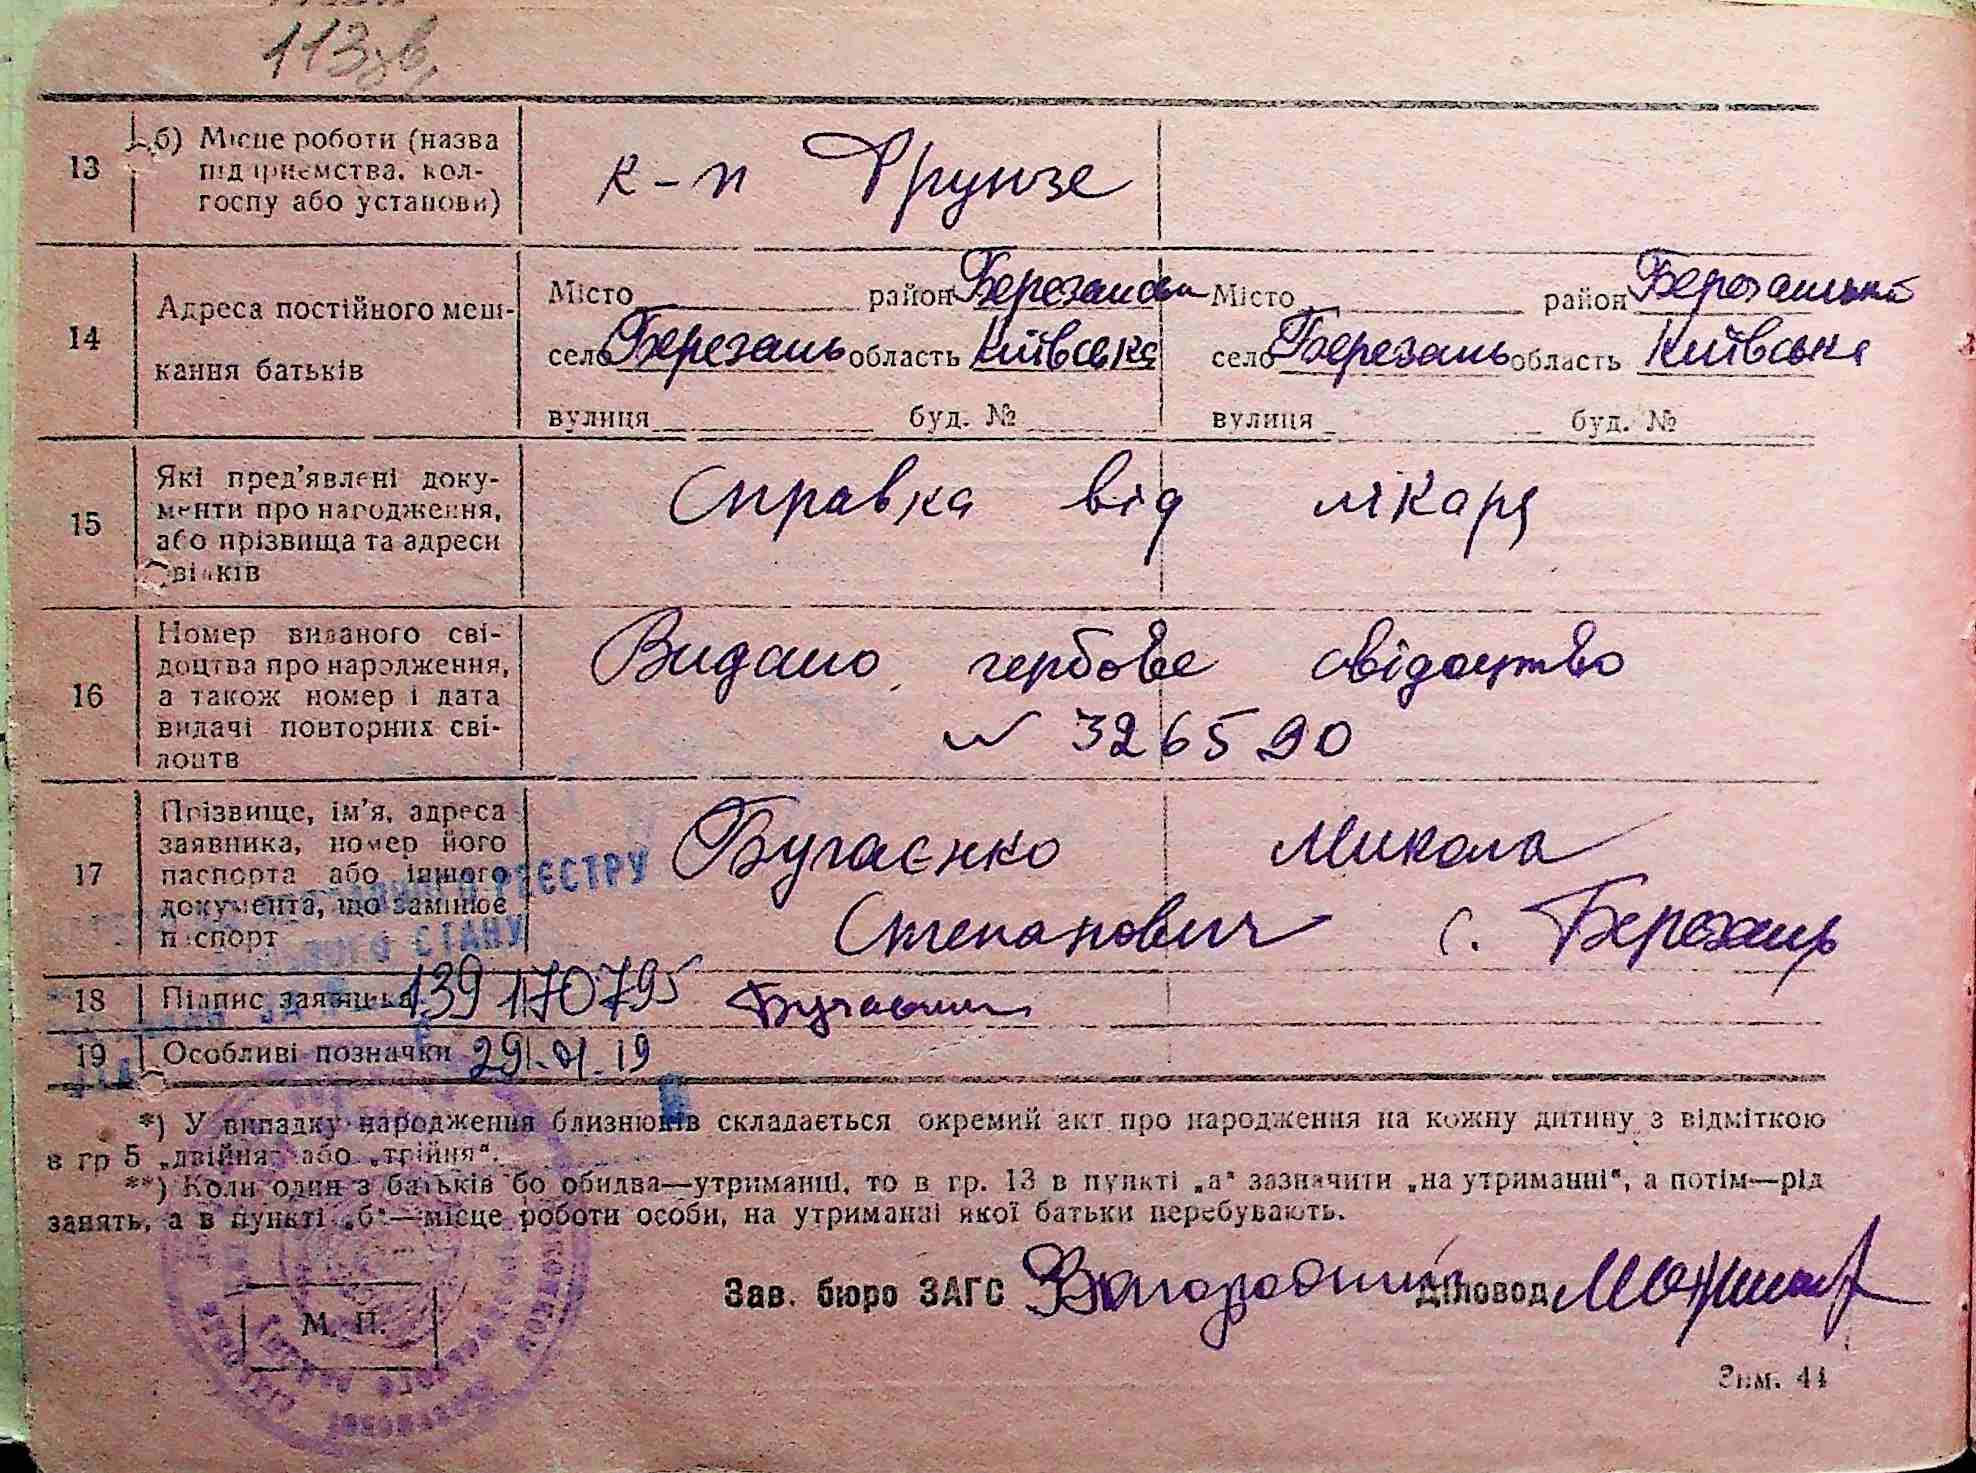 113зв,
13 б) Місце роботи (назва
підприємства, кол-
госпу або установи)
к-п Фрунзе
14 Адреса постійного меш-
кання батьків
Місто район Березанськ
село Березань область Київська
вулиця буд. №
Місто район Березанський
село Березань область Київська
вулиця буд. №
15 Які пред'явлені доку-
менти про народження,
або прізвища та адреси
свідків
Справка від лікаря
16 Номер виданого сві-
доцтва про народження,
а також номер і дата
видачі повторних сві-
доцтв
Видано гербове свідоцтво
№ 326590
17 Прізвище, ім'я, адреса
заявника, номер його
паспорта або іншого
документа, що замінює
паспорт
Бугаєнко Микола
Степанович с. Березань
РЕЄСТРУ
СТАНУ
18 Підпис заявника 139170795
19 Особливі позначки 29.01.19
*) У випадку народження близнюків складається окремий акт про народження на кожну дитину з відміткою
в гр 5 „двійня" або „трійня".
**) Коли один з батьків бо обидва—утриманці, то в гр. 13 в пункті „а" зазначити „на утриманні", а потім—рід
занять, а в пункті „б"—місце роботи особи, на утриманні якої батьки перебувають.
Зав. бюро ЗАГС Діловод
М. П.
Зам. 44